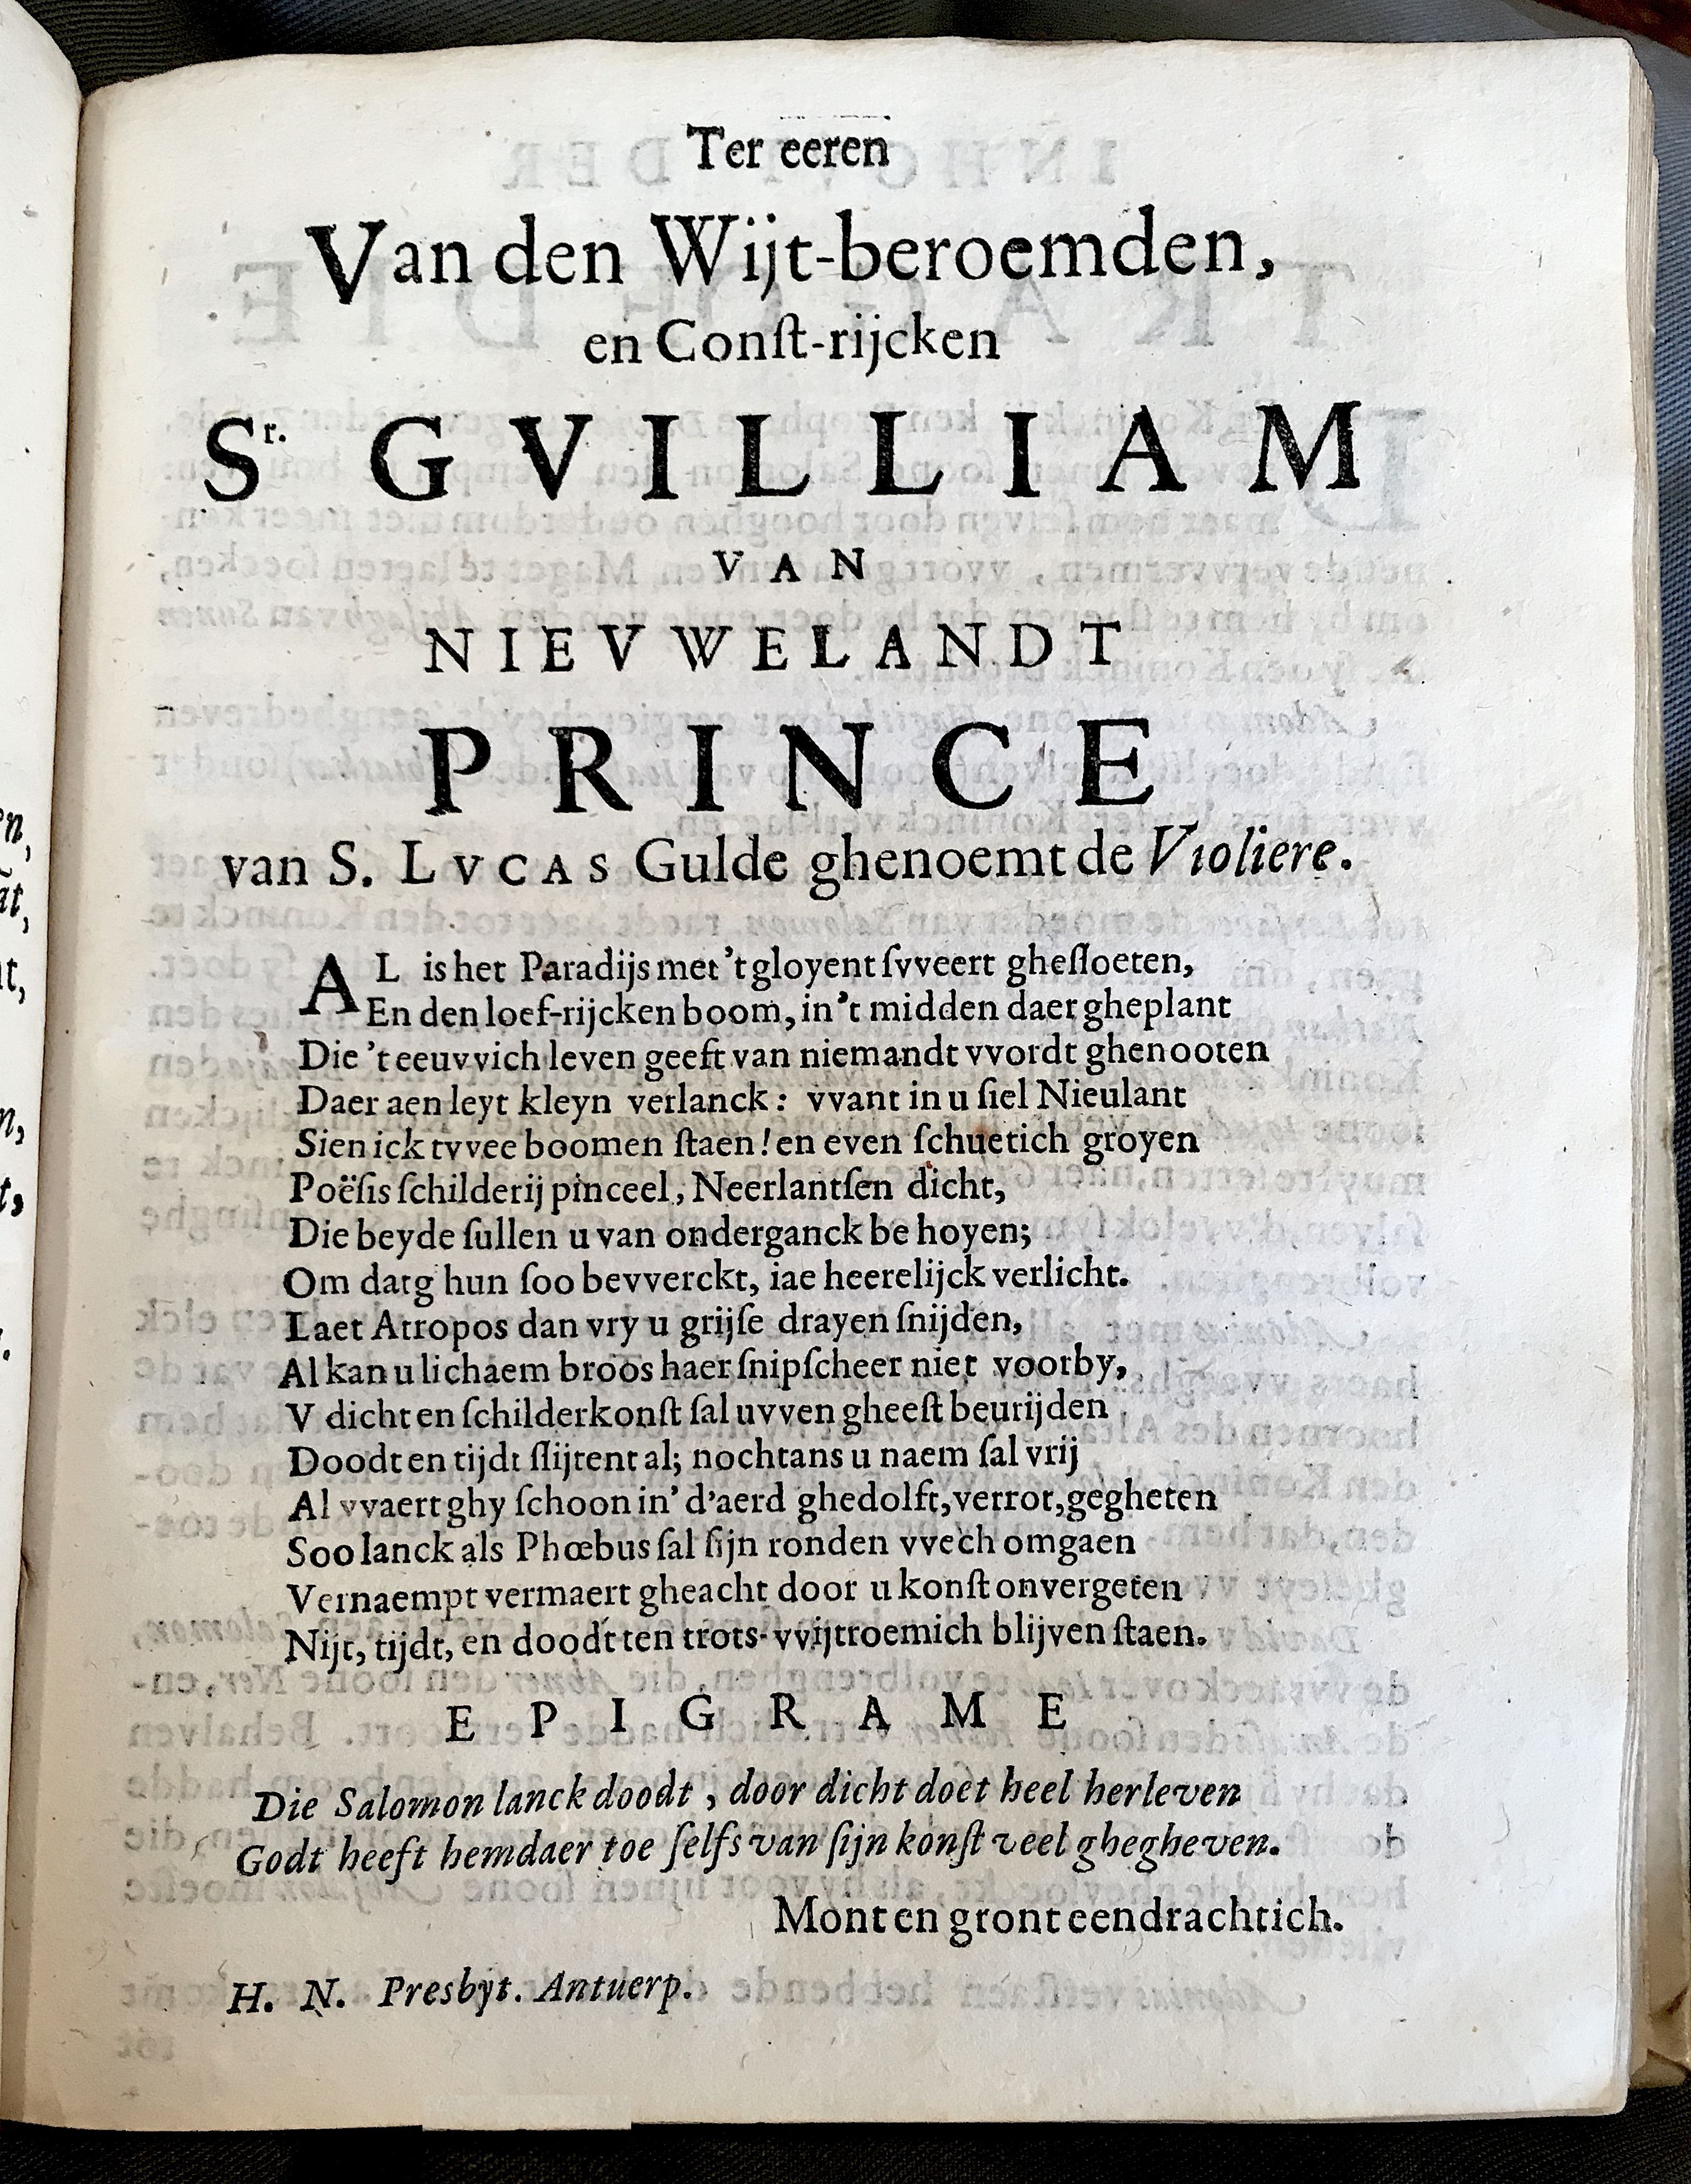 Ter eeren
Van den Wijt-beroemden,
en Conſt-rijcken
Sr. GVILLIAM
VAN
NIEVWELANDT
PRINCE
van S. LVCAS Gulde ghenoemt de Violiere.
AL is het Paradijs met 't gloyent ſvveert gheſloeten,
En den loef-rijcken boom, in 't midden daer gheplant
Die 't eeuvvich leven geeft van niemandt vvordt ghenooten
Daer aen leyt kleyn verlanck: vvant in u ſiel Nieulant
Sien ick tvvee boomen ſtaen! en even ſchuetich groyen
Poëſis ſchilderij pinceel, Neerlantſen dicht,
Die beyde ſullen u van onderganck be hoyen;
Om datg hun ſoo bevverckt, iae heerelijck verlicht.
Laet Atropos dan vry u grijſe drayen ſnijden,
Al kan u lichaem broos haer ſnipſcheer niet voorby,
V dicht en ſchilderkonſt ſal uvven gheeſt beurijden
Doodt en tijdt ſlijtent al; nochtans u naem ſal vrij
Al vvaert ghy ſchoon in' d'aerd ghedolft, verrot, gegheten
Soo lanck als Phœbus ſal ſijn ronden vvech omgaen
Vernaempt vermaert gheacht door u konſt onvergeten
Nijt, tijdt, en doodt ten trots vvijtroemich blijven ſtaen.
EPIGRAME
Die Salomon lanck doodt, door dicht doet heel herleven
Godt heeft hem daer toe ſelfs van ſijn konſt veel ghegheven.
Mont en gront eendrachtich.
H. N. Presbyt. Antuerp.